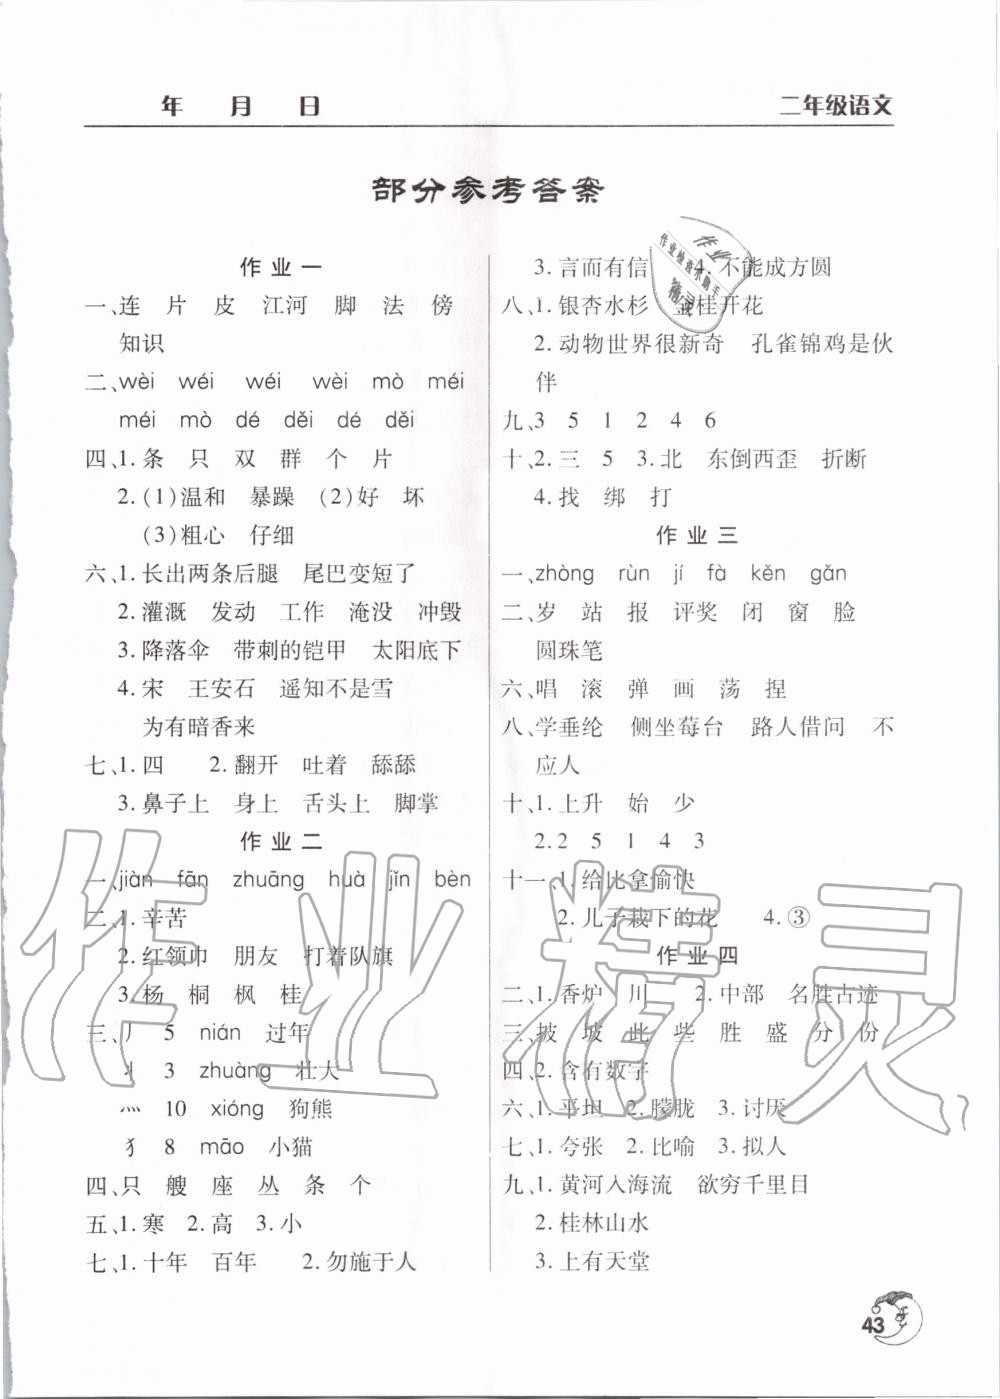 年 月 日 二年级语文
部分参考答案
作业一
一、连 片 皮 江河 脚 法 傍
知识
二、wèi wéi wéi wèi mò méi
méi mò dé děi dé děi
四、1.条 只 双 群 个 片
2.(1)温和 暴躁 (2)好 坏
(3)粗心 仔细
六、1.长出两条后腿 尾巴变短了
2.灌溉 发动 工作 淹没 冲毁
3.降落伞 带刺的铠甲 太阳底下
4.宋 王安石 遥知不是雪
为有暗香来
七、1.四 2.翻开 吐着 舔舔
3.鼻子上 身上 舌头上 脚掌
作业二
一、jiàn fān zhuāng huà jǐn bèn
二、1.辛苦
2.红领巾 朋友 打着队旗
3.杨 桐 枫 桂
三、丿 5 nián 过年
丬 3 zhuàng 壮大
灬 10 xióng 狗熊
犭 8 māo 小猫
四、只 艘 座 丛 条 个
五、1.寒 2.高 3.小
七、1.十年 百年 2.勿施于人
3.言而有信 4.不能成方圆
八、1.银杏水杉 金桂开花
2.动物世界很新奇 孔雀锦鸡是伙
伴
九、3 5 1 2 4 6
十、2.三 5 3.北 东倒西歪 折断
4.找 绑 打
作业三
一、zhòng rùn jí fà kěn gǎn
二、岁 站 报 评奖 闭 窗 脸
圆珠笔
六、唱 滚 弹 画 荡 捏
八、学垂纶 侧坐莓台 路人借问 不
应人
十、1.上升 始 少
2.2 5 1 4 3
十一、1.给比拿愉快
2.儿子栽下的花 4.③
作业四
二、1.香炉 川 2.中部 名胜古迹
三、披 坡 此 些 胜 盛 分 份
四、2.含有数字
六、1.平坦 2.朦胧 3.讨厌
七、1.夸张 2.比喻 3.拟人
九、1.黄河入海流 欲穷千里目
2.桂林山水
3.上有天堂
43
作业精灵